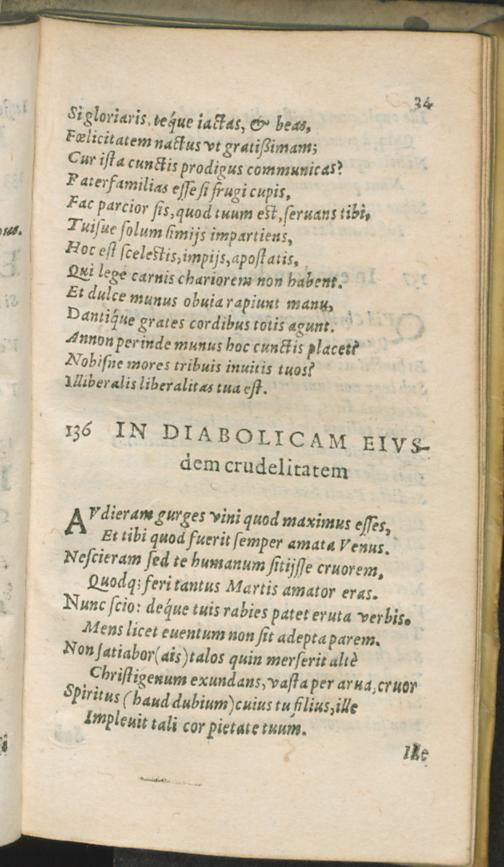 34
Si gloriaris, teq́ue iactas, & beas,
Fœlicitatem nactus vt gratißimam;
Cur ista cunctis prodigus communicas?
Paterfamilias esse si frugi cupis,
Fac parcior sis, quod tuum est, seruans tibi,
Tuisue solum simijs impartiens,
Hoc est scelestis, impijs, apostatis,
Qui lege carnis chariorem non habent.
Et dulce munus obuia rapiunt manu,
Dantiq́ue grates cordibus totis agunt.
Annon perinde munus hoc cunctis placet?
Nobisne mores tribuis inuitis tuos?
Illiberalis liberalitas tua est.
136 IN DIABOLICAM EIVS-
dem crudelitatem
AVdieram gurges vini quod maximus esses,
Et tibi quod fuerit semper amata Venus.
Nescieram sed te humanum sitijsse cruorem,
Quodq; feri tantus Martis amator eras.
Nunc scio: deq́ue tuis rabies patet eruta verbis.
Mens licet euentum non sit adepta parem.
Non satiabor (ais) talos quin merserit altè
Christigenum exundans, vasta per arua, cruor
Spiritus (haud dubium) cuius tu filius, ille
Impleuit tali cor pietate tuum.
Ille